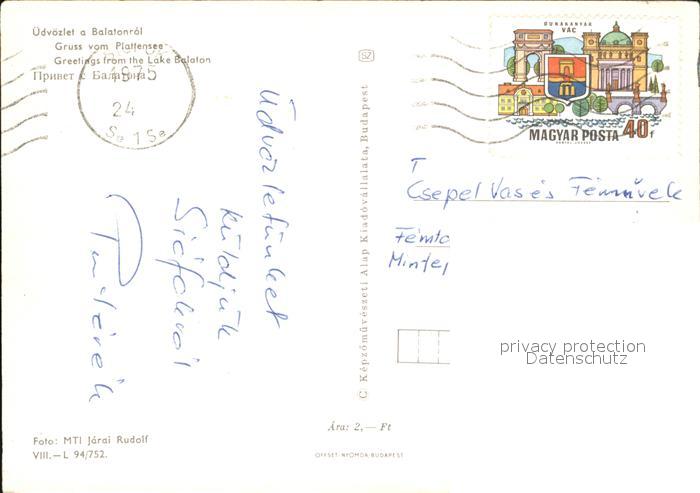 Üdvözlet a Balatonról
Gruss vom Plattensee
Greetings from the Lake Balaton
Привет с Балатона
24
SZ
DUNAKANYAR
VÁC
MAGYAR POSTA 40f
T
Csepel Vas és Fémművek
Fémto
Üdvözletünket
küldjük
Siófokról
C Képzőművészeti Alap Kiadóvállalata, Budapest
privacy protection
Datenschutz
Ára: 2,— Ft
Foto: MTI Járai Rudolf
VIII.—L 94/752.
OFFSET-NYOMDA·BUDAPEST